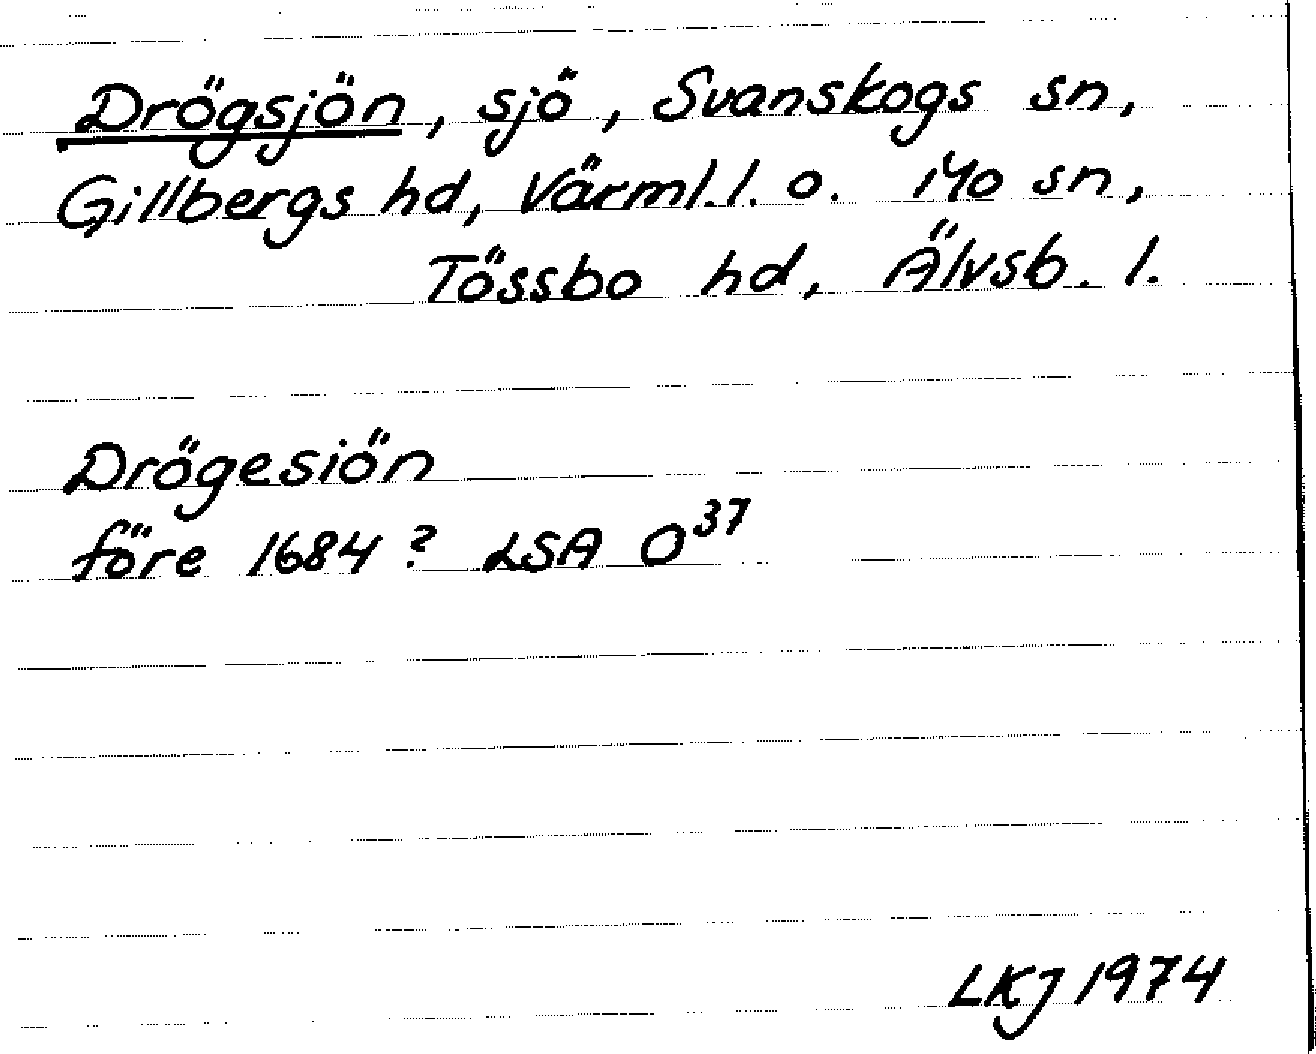 Drögsjön, sjö, Svanskogs sn,
Gillbergs hd, Värml. l. o. Mo sn,
Tössbo hd, Älvsb. l.
Drögesiön
före 1684? LSA O³⁷
LKJ 1974